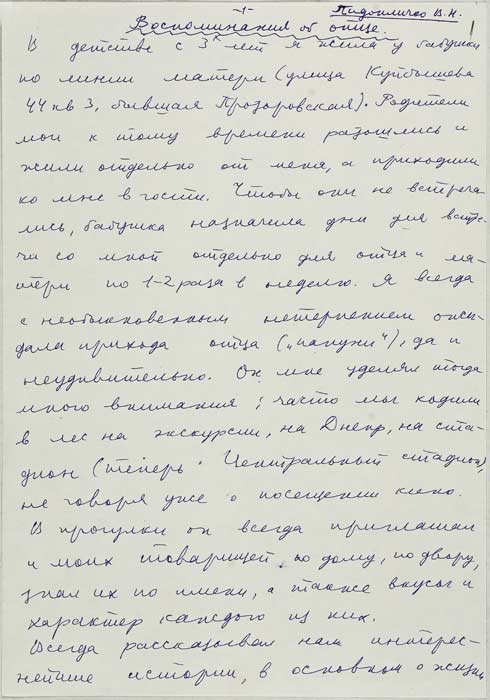 -1-
Пидопличко В.Н.
Воспоминания об отце.
1
В детстве с 3х лет я жила у бабушки
по линии матери (улица Куйбышева
44 кв 3, бывшая Прозоровская). Родители
мои к тому времени разошлись и
жили отдельно от меня, а приходили
ко мне в гости. Чтобы они не встреча
лись, бабушка назначила дни для встре-
чи со мной отдельно для отца и ма-
тери по 1-2 раза в неделю. Я всегда
с необыкновенным нетерпением ожи-
дала прихода отца („папужи“), да и
неудивительно. Он мне уделял тогда
много внимания; часто мы ходили
в лес на экскурсии, на Днепр, на ста-
дион (теперь Центральный стадион),
не говоря уже о посещении кино.
В прогулки он всегда приглашал
и моих товарищей по дому, по двору,
знал их по имени, а также вкусы и
характер каждого из них.
Всегда рассказывал нам интерес-
нейшие истории, в основном о жизни